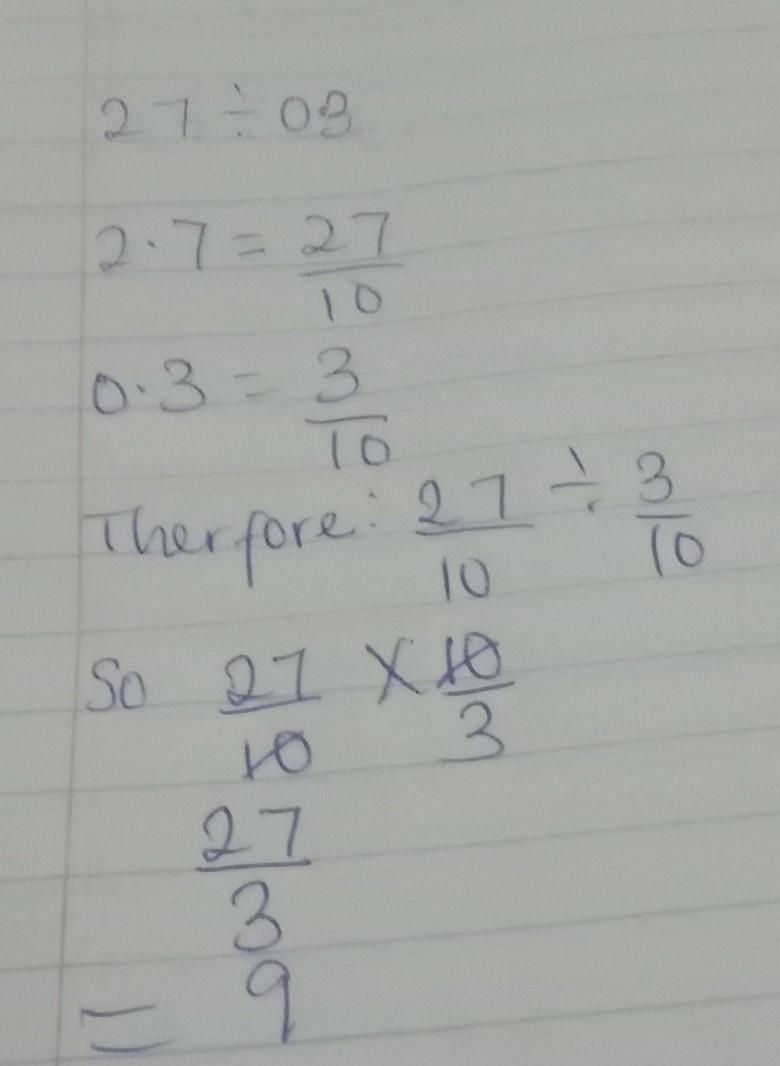 27 ÷ 03
2.7 = 27/10
0.3 = 3/10
Therfore: 27/10 ÷ 3/10
So 27/10 × 10/3
27/3
= 9